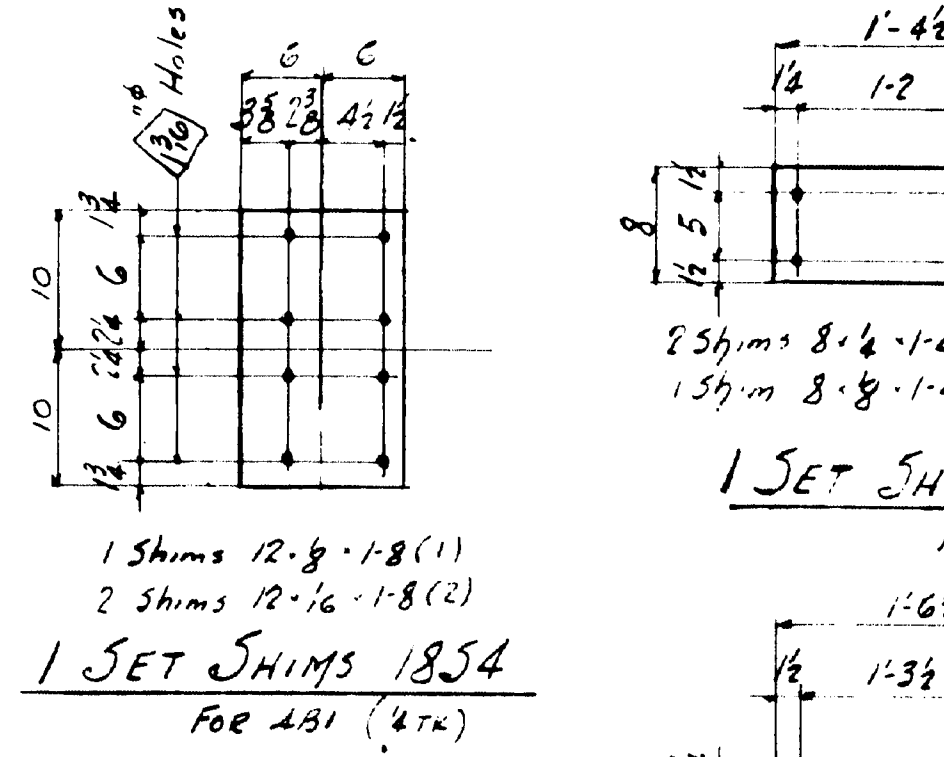 6 6
3 5/8 2 3/8 4 1/2 1 1/2
1 3/16 "φ Holes
1 3/4
10 6
2 1/4
2 1/4
10 6
1 3/4
1 Shims 12 · 1/8 · 1-8 (1)
2 Shims 12 · 1/16 · 1-8 (2)
1 SET SHIMS 18S4
FOR AB1 (1/4 TK)
1'-4 1/2
1 1/4 1-2
1 1/2
8 5
1 1/2
2 Shims 8 · 1/4 · 1-4
1 Shim 8 · 1/8 · 1-4
1 SET SH
1'-6
1 1/2 1'-3 1/2